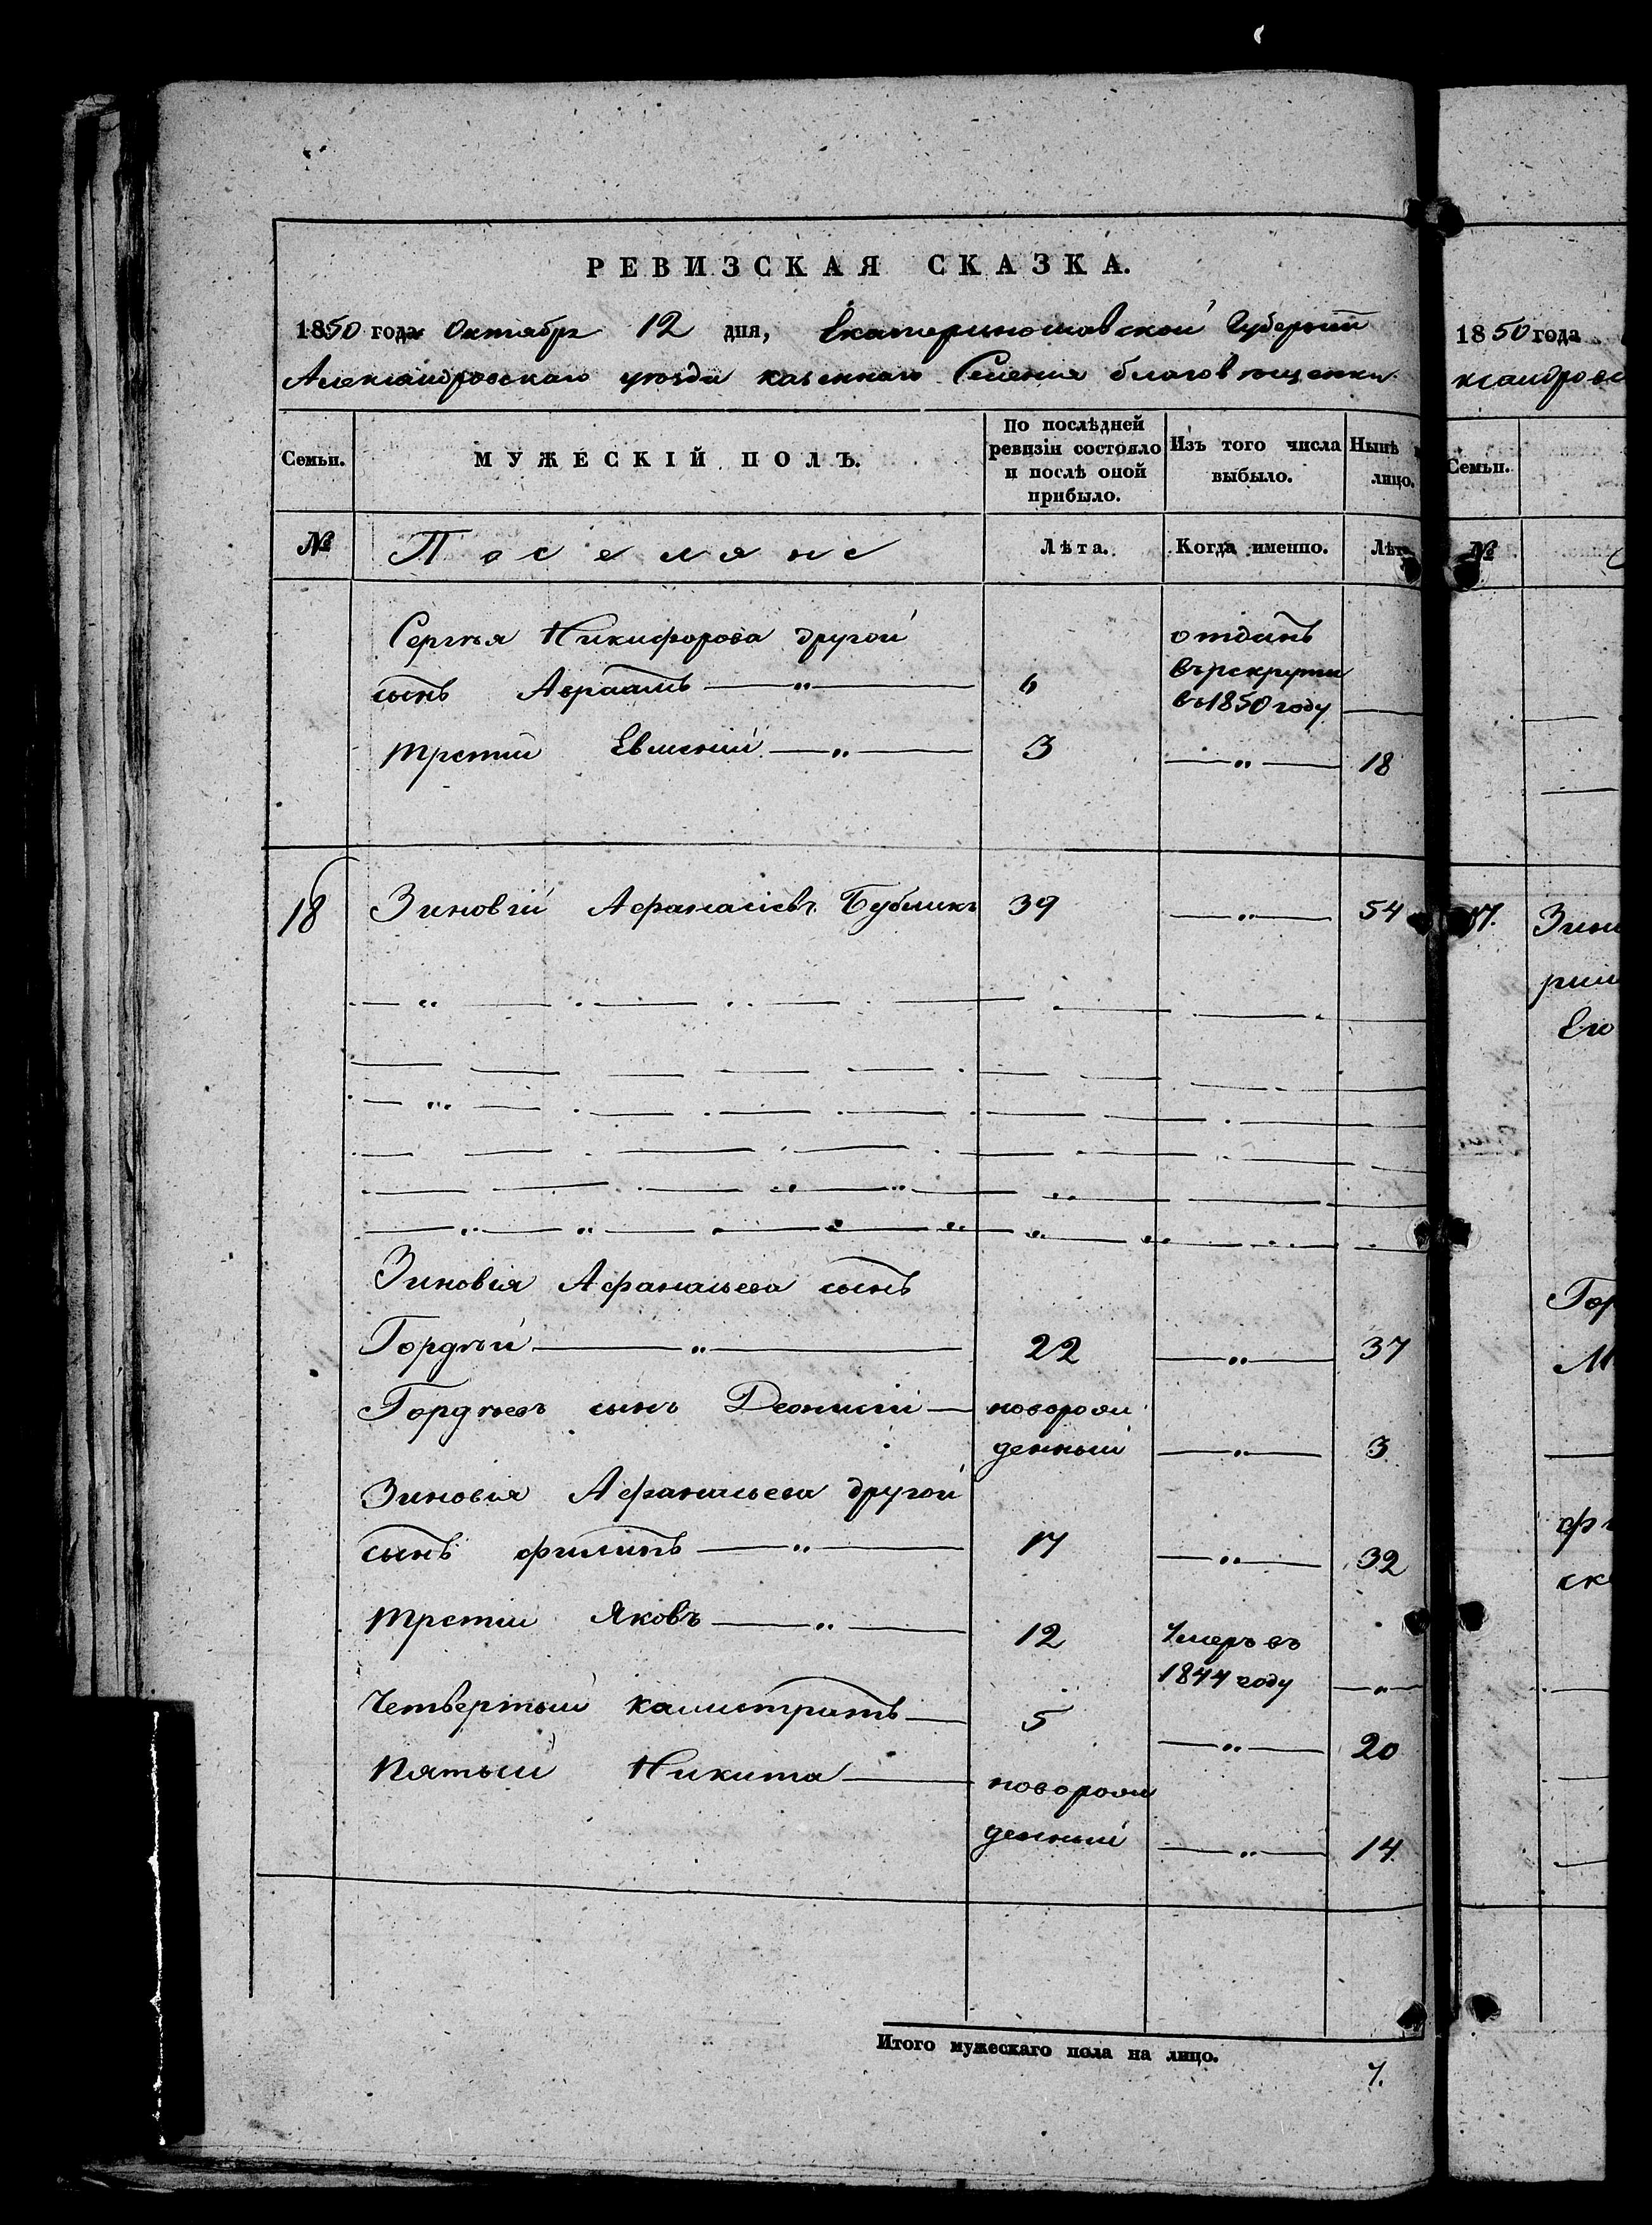 РЕВИЗСКАЯ СКАЗКА.
1850 года Октября 12 дня, Екатеринославской Губернии
Александровскаго уезда казеннаго Селения благовѣщенки
Семьи.
МУЖЕСКІЙ ПОЛЪ.
По послѣдней
ревизіи состояло
и послѣ оной
прибыло.
Изъ того числа
выбыло.
Нынѣ
лицо.
№
Поселяне
Лѣта.
Когда именно.
Лѣта
Сергѣя Никифорова другой
сынъ Авраамъ — „ — 6 отданъ
въ рекруты
въ 1850 году —
третій Евмений — „ — 3 — „ — 18
18 Зиновій Афанасіевъ Бубликъ 39 — „ — 54
Зиновія Афанасьева сынъ
Гордѣй — „ — 22 — „ — 37
Гордѣевъ сынъ Деонисій — новорож
денный — „ — 3
Зиновія Афанасьева другой
сынъ филипъ — „ — 17 — „ — 32
третій Яковъ — „ — 12 Умеръ въ
1844 году — „ —
Четвертый Калистратъ — 5 — „ — 20
Пятый Никита — новорож
денный — „ — 14
Итого мужескаго пола на лицо.
7.
1850 года
ксандровс
Семьи.
№
17. Зино
Его
Гор